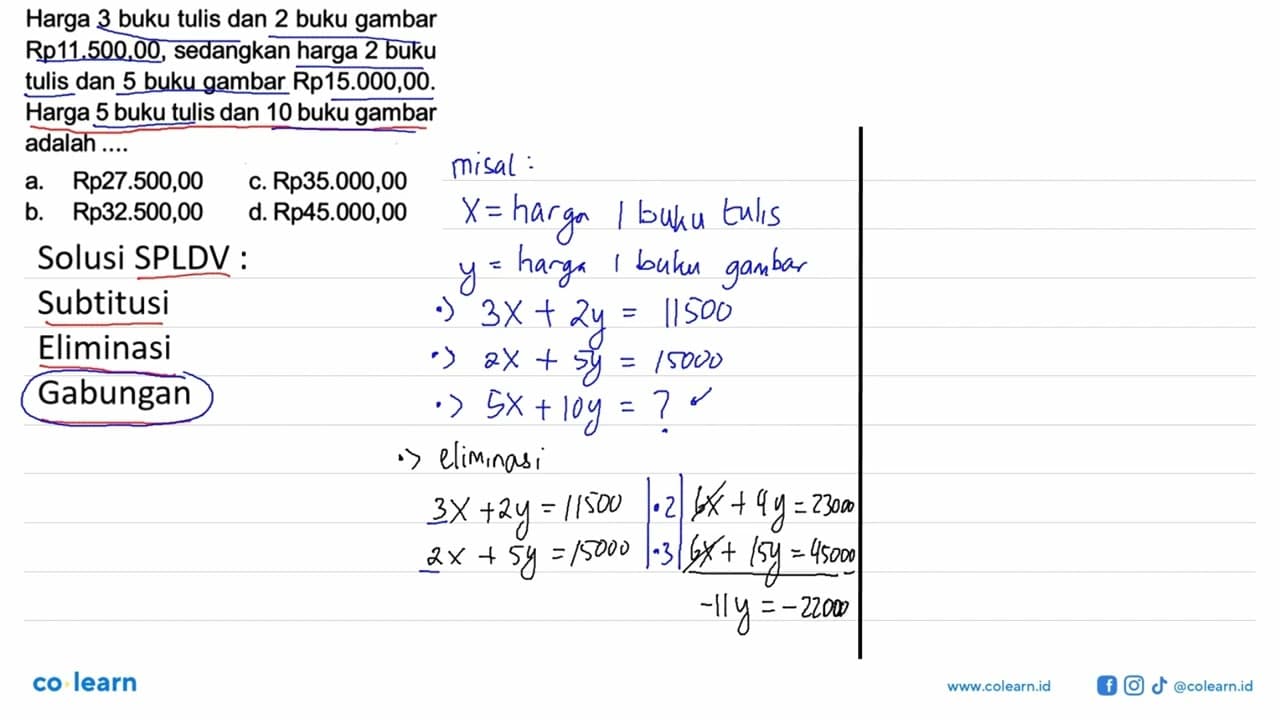 Harga 3 buku tulis dan 2 buku gambar
Rp11.500,00, sedangkan harga 2 buku
tulis dan 5 buku gambar Rp15.000,00.
Harga 5 buku tulis dan 10 buku gambar
adalah ....
a. Rp27.500,00 c. Rp35.000,00
b. Rp32.500,00 d. Rp45.000,00
Solusi SPLDV :
Subtitusi
Eliminasi
Gabungan
misal :
x = harga 1 buku tulis
y = harga 1 buku gambar
•> 3x + 2y = 11500
•> 2x + 5y = 15000
•> 5x + 10y = ? ✓
•> eliminasi
3x + 2y = 11500 |•2| 6x + 4y = 23000
2x + 5y = 15000 |•3| 6x + 15y = 45000 –
-11y = -22000
co learn
www.colearn.id @colearn.id